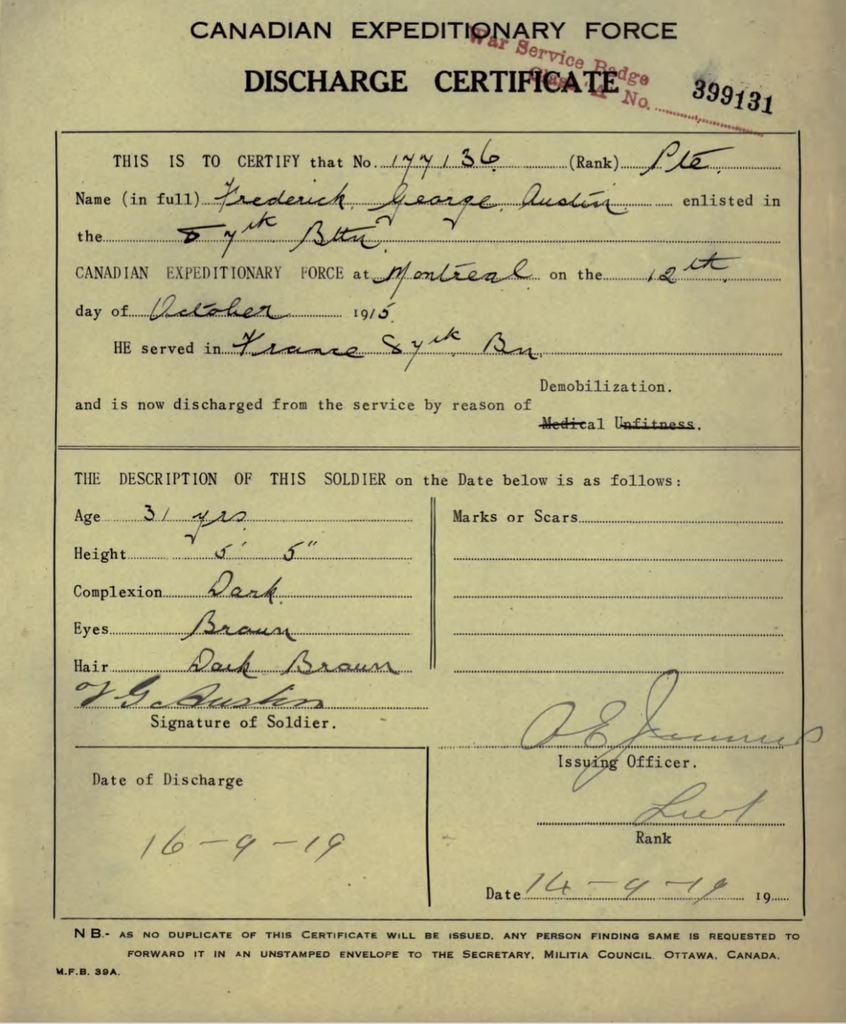 CANADIAN EXPEDITIONARY FORCE
War Service Badge
DISCHARGE CERTIFICATE
Class "A" No. 399131
THIS IS TO CERTIFY that No. 177136 (Rank) Pte.
Name (in full) Frederick George Austin enlisted in
the 87th Bttn.
CANADIAN EXPEDITIONARY FORCE at Montreal on the 12th
day of October 1915
HE served in France 87th Bn.
Demobilization.
and is now discharged from the service by reason of
Medical Unfitness.
THE DESCRIPTION OF THIS SOLDIER on the Date below is as follows:
Age 31 yrs
Height 5' 5"
Complexion Dark
Eyes Brown
Hair Dark Brown
Marks or Scars
F G Austin
Signature of Soldier.
Issuing Officer.
Lieut
Rank
Date of Discharge
16-9-19
Date 14-9-19 19
N B.- AS NO DUPLICATE OF THIS CERTIFICATE WILL BE ISSUED, ANY PERSON FINDING SAME IS REQUESTED TO
FORWARD IT IN AN UNSTAMPED ENVELOPE TO THE SECRETARY, MILITIA COUNCIL OTTAWA, CANADA.
M.F.B. 39A.